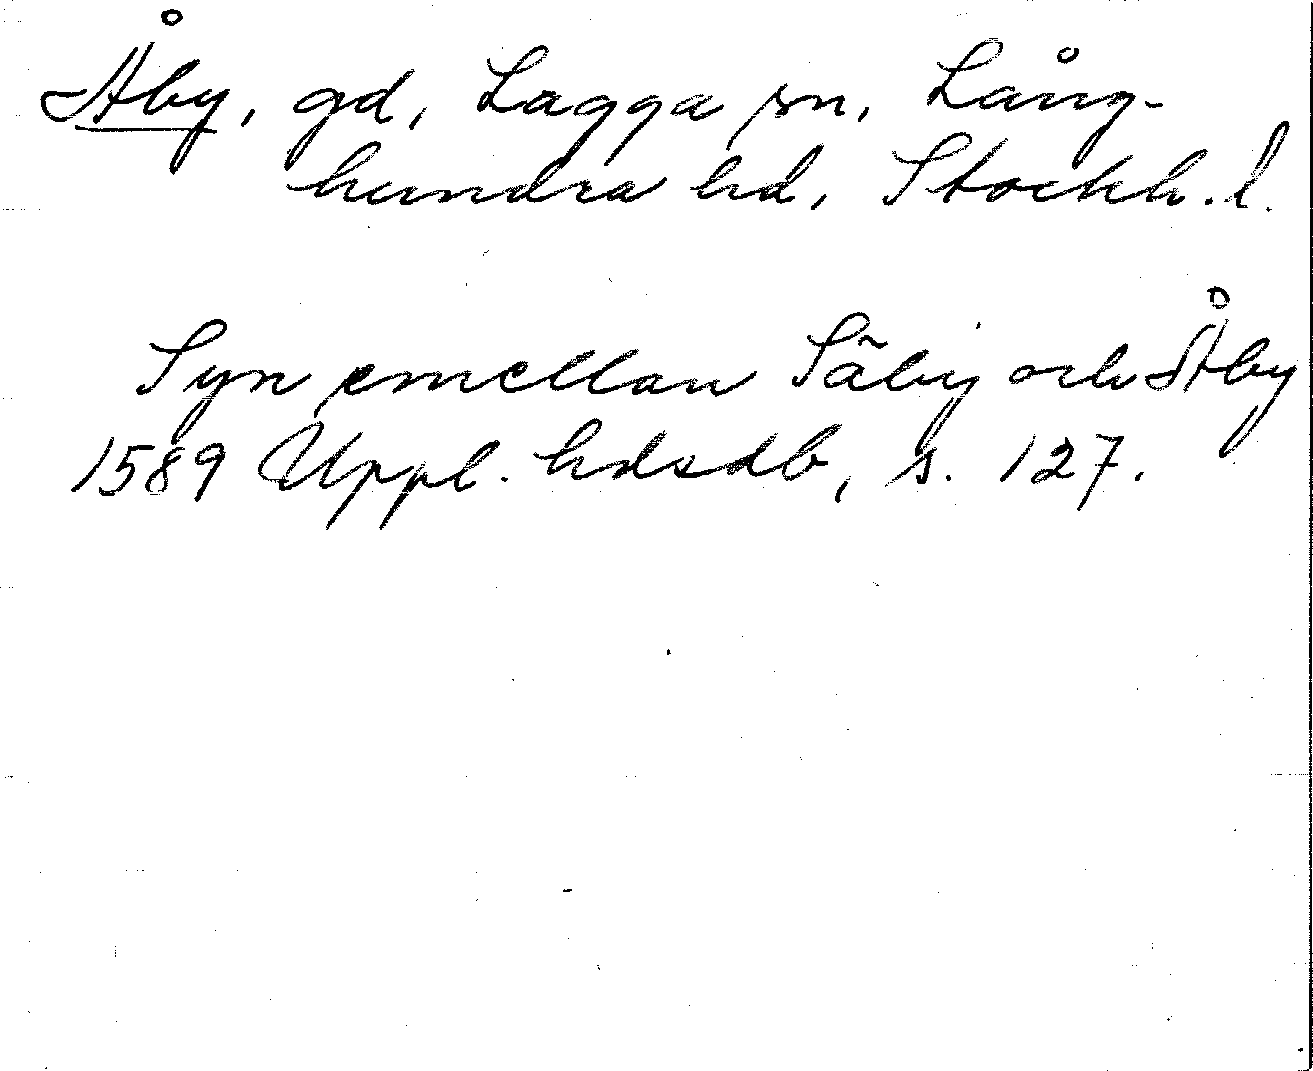 Åby, gd, Lagga sn, Lång-
hundra hd, Stockh. l.
Syn emellan Säby och Åby
1589 Uppl. hdsdb, s. 127.